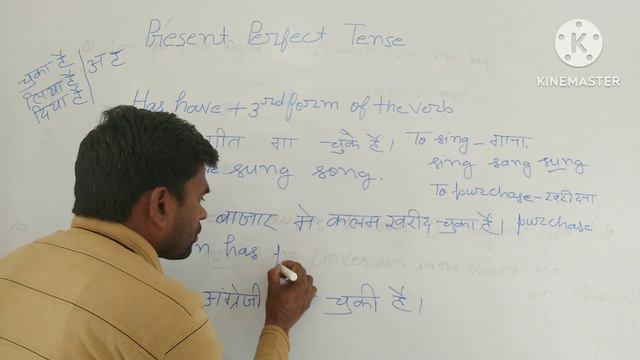 Present Perfect Tense
चुका है / अ है
लिया है
दिया है
Has have + 3rd form of the verb
गीत गा चुके हैं। To sing - गाना.
sung song. sing sang sung
To purchase - खरीदना
बाजार मे कलम खरीद चुका है। purchase
has
अंग्रेजी चुकी है।
KINEMASTER